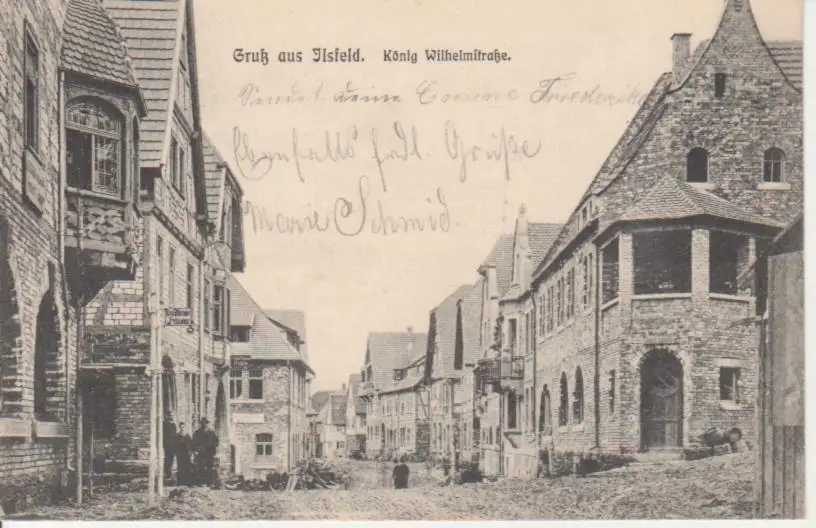 Gruß aus Ilsfeld. König Wilhelmstraße.
Sendet deine Friederike
Ebenfalls frdl. Grüße
Marie Schmid.